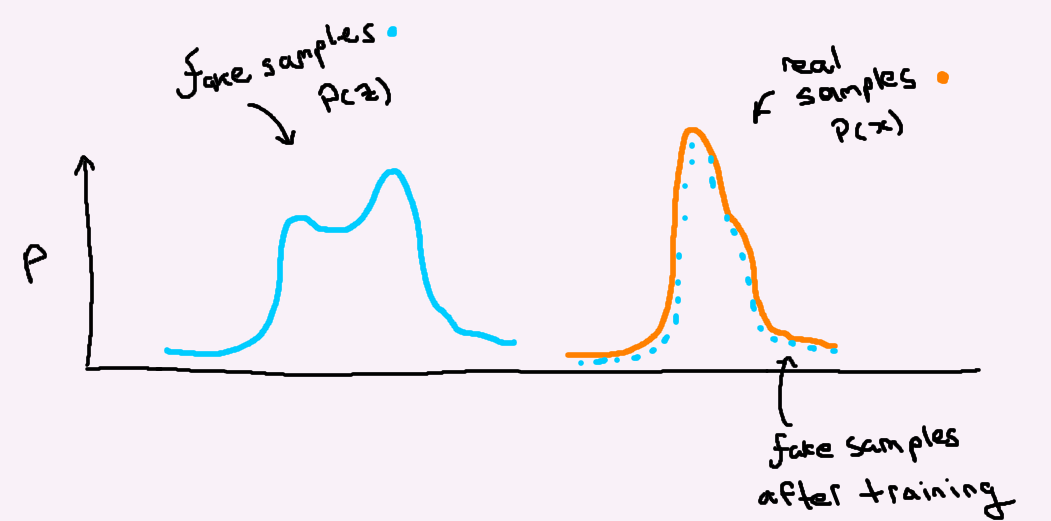 fake samples
P(z)
real
samples
P(x)
P
fake samples
after training